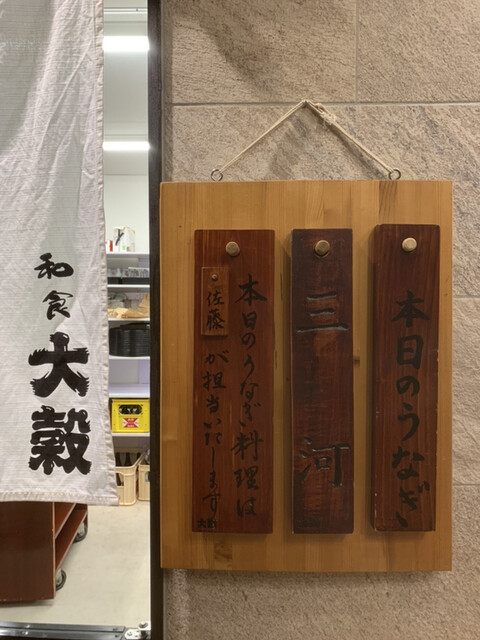 本日のうなぎ
三河
本日のうなぎ料理は
佐藤
が担当いたします
和食
大穀